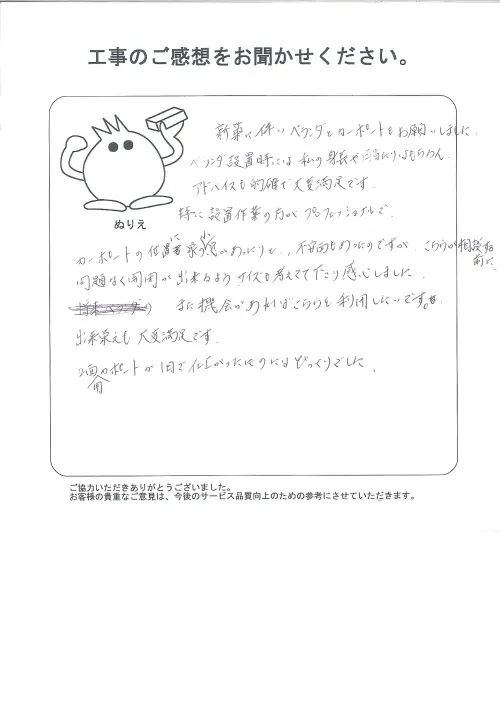 工事のご感想をお聞かせください。
新築に伴いベランダとカーポートをお願いしました。
ベランダ設置時には私の身長や はもちろん、
アドバイスも的確で大変満足です。
特に設置作業の方がプロフェッショナルで、
ぬりえ
カーポートの位置に があったりと、不安面もあったのですが、こちらが相談する前に、
問題なく開閉が出来るようサイズも考えて下さり感心しました。
また機会があればこちらを利用したいです。
出来栄えも大変満足です。
2面用カーポートが1日で仕上がったのにはびっくりでした。
ご協力いただきありがとうございました。
お客様の貴重なご意見は、今後のサービス品質向上のための参考にさせていただきます。